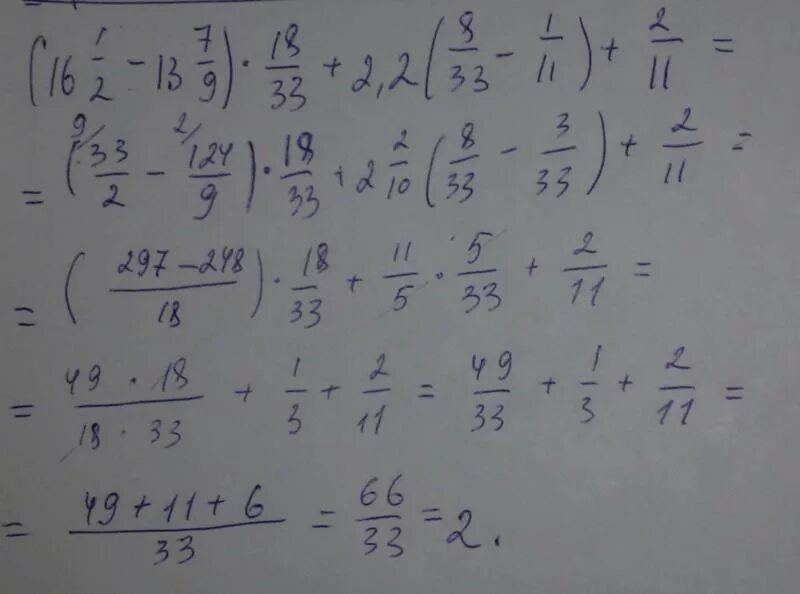 (16 1/2 − 13 7/9) · 18/33 + 2,2 (8/33 − 1/11) + 2/11 =
= (9/ 33/2 − 2/ 124/9) · 18/33 + 2 2/10 (8/33 − 3/33) + 2/11 =
= ((297 − 248)/18) · 18/33 + 11/5 · 5/33 + 2/11 =
= (49 · 18)/(18 · 33) + 1/3 + 2/11 = 49/33 + 1/3 + 2/11 =
= (49 + 11 + 6)/33 = 66/33 = 2.